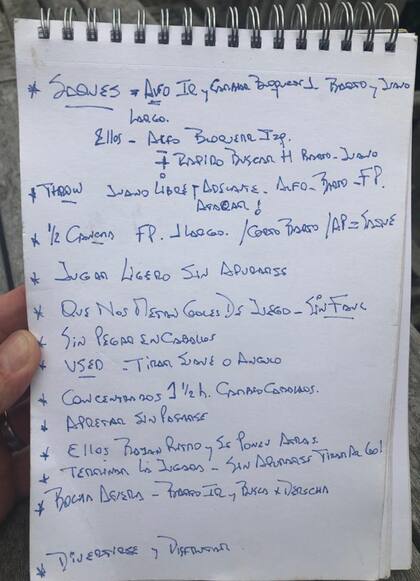 * SAQUES = ALFO IZ y CAMBIAR BLOQUEOS 1 BARTO y JUANO
LARGO.
Ellos - ALFO BLOQUEAR IZQ.
+ RAPIDO BUSCAR H BARTO - JUANO
* THROW JUANO LIBRE ↑ ADELANTE - ALFO - BARTO - FP.
ATACAR!
* 1/2 CANCHA FP. 1 LARGO. / CORTO BARTO / AP = SAQUE
* JUGAR LIGERO SIN APURARSE
* QUE NOS METAN GOLES DE JUEGO - SIN FAUL
* SIN PEGAR EN CABALLOS
* USED - TIRAR SUAVE O ANGULO
* CONCENTRADOS 1 1/2 h. CAMBIO CABALLOS.
* APRETAR SIN PASARSE
* Ellos BAJAN RITMO y SE PONEN ATRAS
* TERMINAR LA JUGADA - SIN APURARSE TIRAR AL GOL
* BOCHA AFUERA - BARTO IZ y BUSCA x DERECHA
* DIVERTIRSE y DISFRUTAR